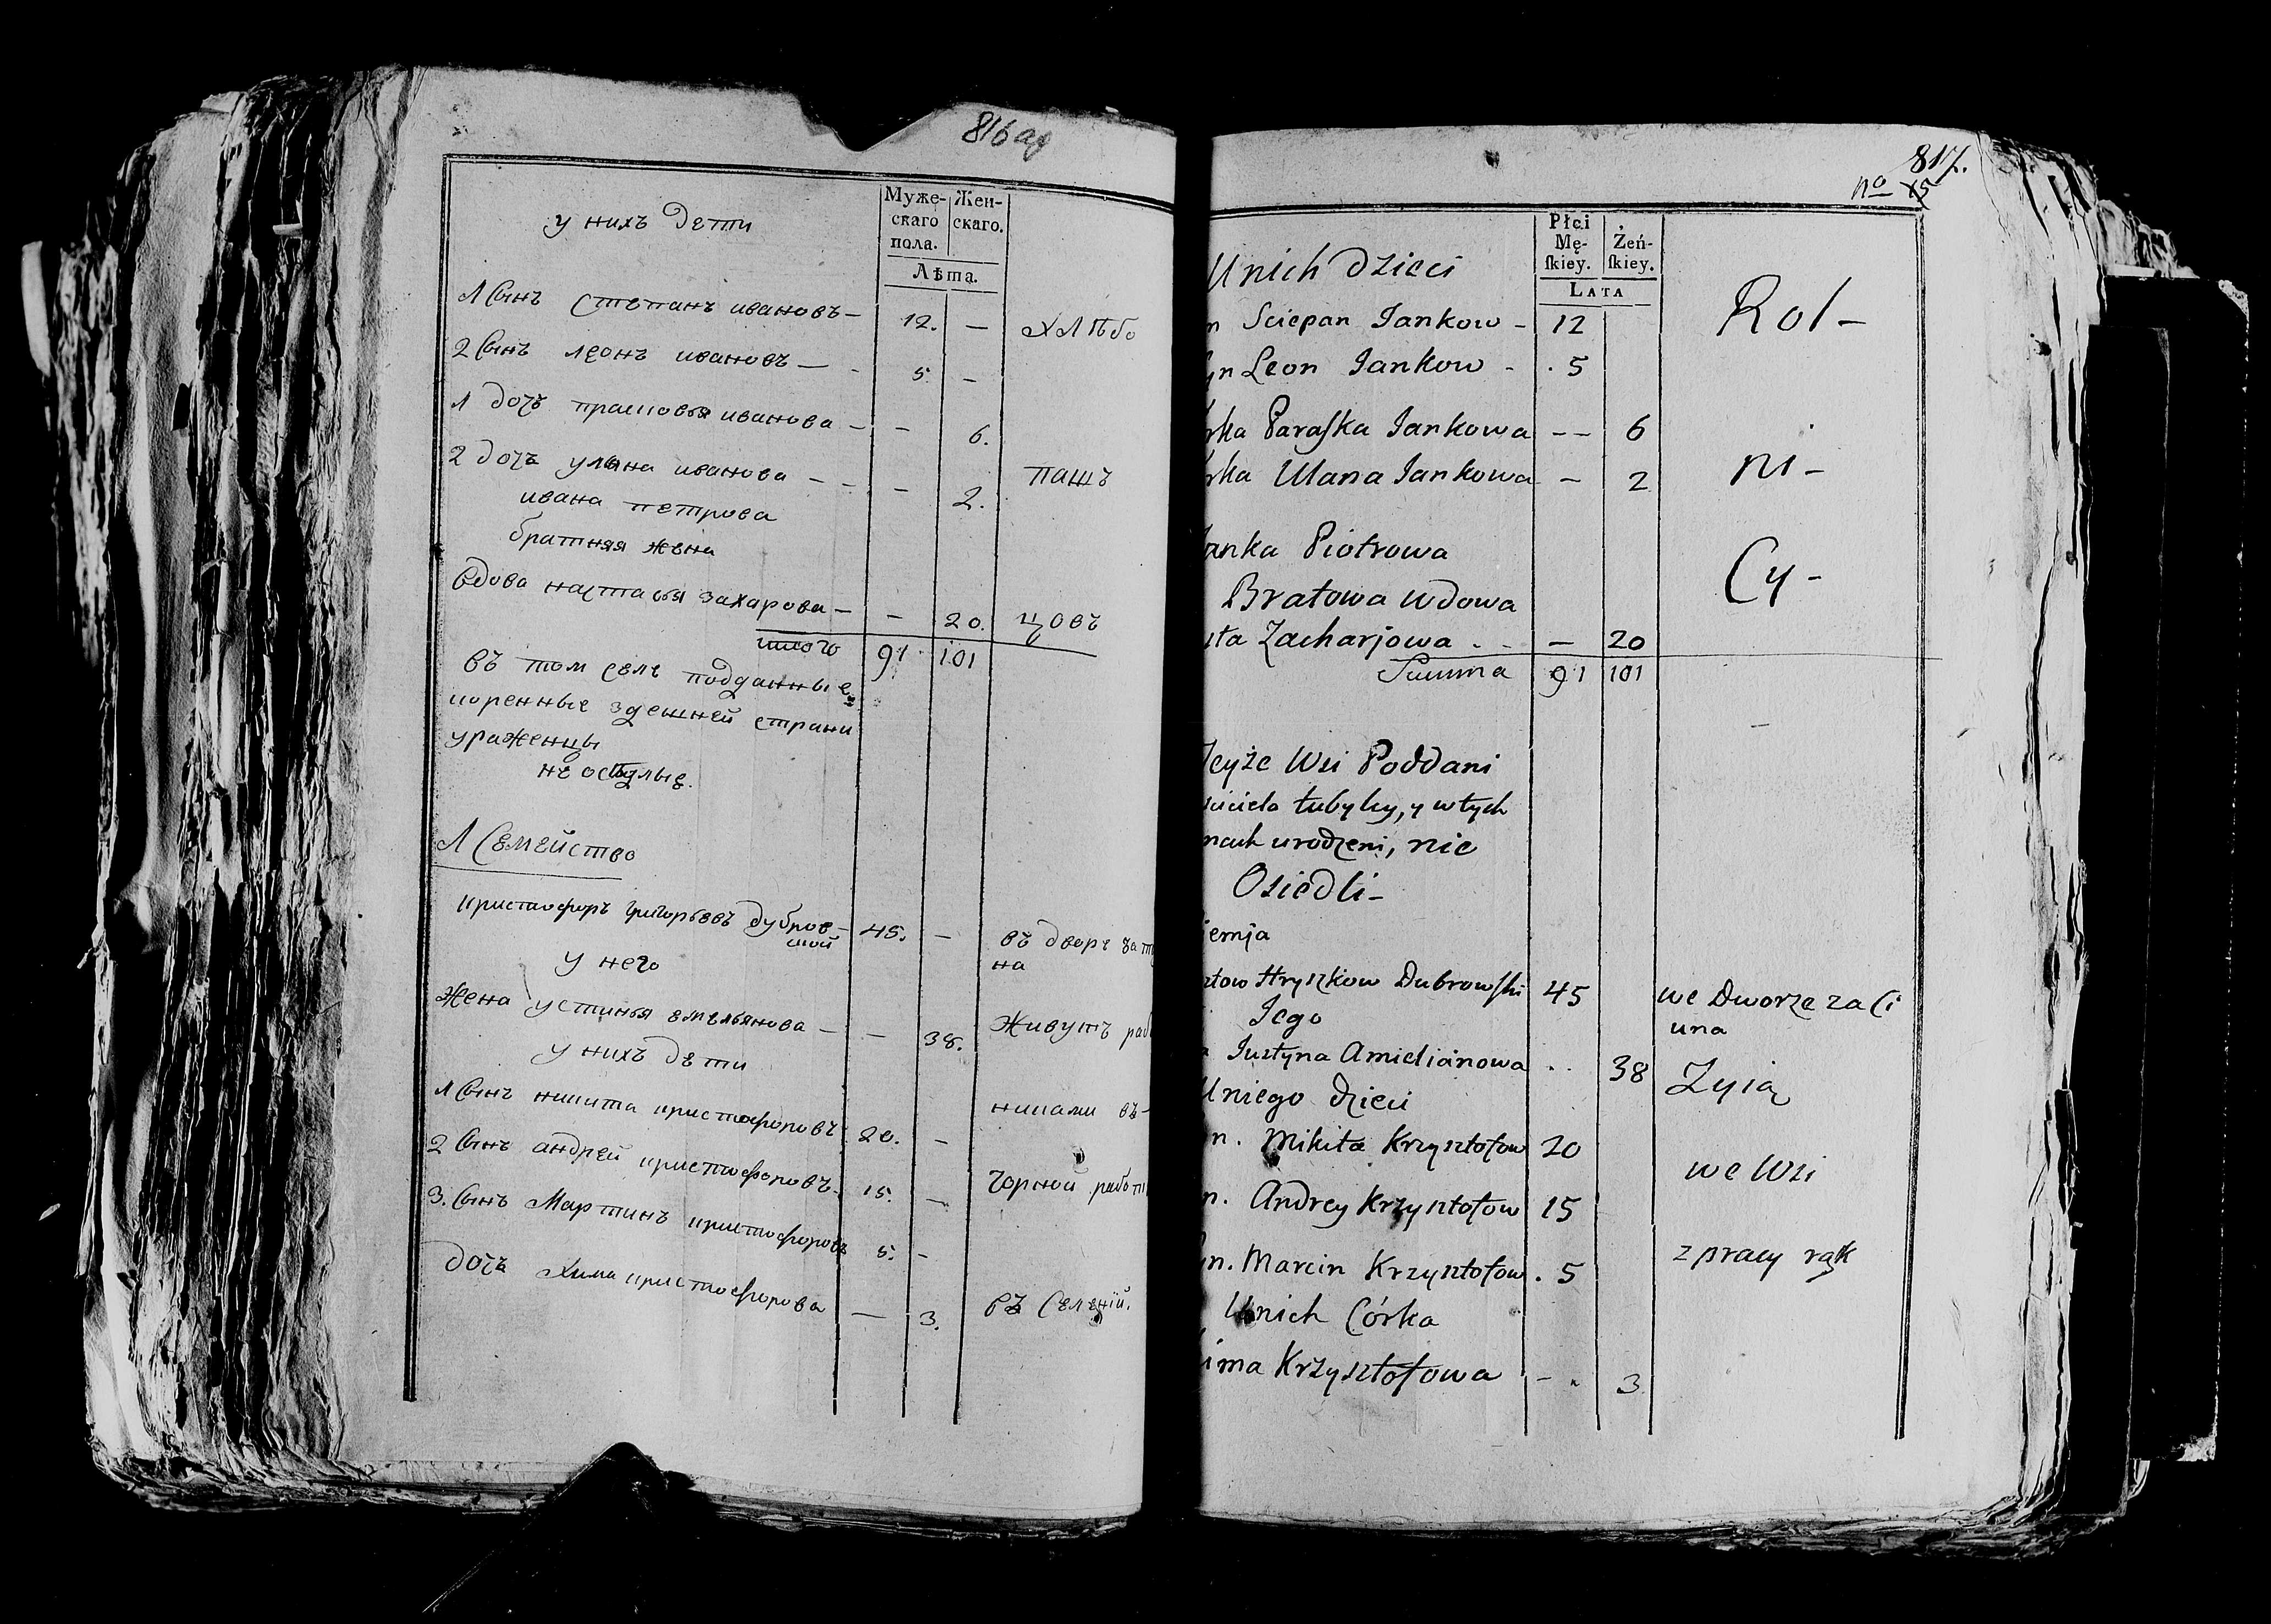 816 об
Муже-
скаго
пола.
Жен-
скаго.
Лѣта.
у нихъ дети
1 Сынъ степанъ ивановъ — 12. — хлѣбо
2 Сынъ леонъ ивановъ — 5. —
1 дочъ прасковья иванова — — 6.
2 дочъ уляна иванова — — 2. пашъ
ивана петрова
братняя жена
вдова настасья захарова — — 20. цовъ
итого 91 101
въ том селе подданные
коренные здешней страни
ураженцы
не оседлые.
1 Семейство
кристофоръ григорьевъ дубров-
ский 45. — въ дворе за ти
на
у него
жена устинья емельянова — — 38. живутъ раб
у нихъ дети
1 Сынъ никита кристофоровъ 20. — никами въ
2 Сынъ андрей кристофоровъ 15. — чорной работ
3. Сынъ Мартинъ кристофоровъ 5. —
дочъ Хима кристофорова — 3. въ Селений.
817.
no 15
Płci
Mę-
skiey.
Żeń-
skiey.
LATA
U nich dzieci
n Sciepan Jankow - 12 Rol-
yn Leon Jankow - 5
rka Paraska Jankowa - - 6
rka Ulana Jankowa - 2 ni-
anka Piotrowa
Bratowa wdowa Cy-
sta Zacharjowa - 20
Summa 91 101
Teyże Wsi Poddani
ściciela tubylcy, y w tych
ncach urodzeni, nie
Osiedli-
iemja
ztow Hryszkow Dubrowski 45 we Dworze za Ci
una
Jego
Justyna Amielianowa . . 38 Zyią
U niego dzieci
n. Mikita Krzysztofow 20 we Wsi
n. Andrey Krzysztofow 15
yn. Marcin Krzysztofow . 5 z pracy rąk
U nich Córka
ima Krzysztofowa - 3